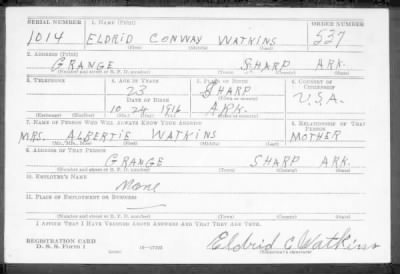 SERIAL NUMBER 1. NAME (Print) ORDER NUMBER
1014 ELDRID CONWAY WATKINS 527
(First) (Middle) (Last)
2. ADDRESS (Print)
GRANGE SHARP ARK.
(Number and street or R. F. D. number) (Town) (County) (State)
3. TELEPHONE 4. AGE IN YEARS 5. PLACE OF BIRTH 6. COUNTRY OF CITIZENSHIP
23 SHARP
DATE OF BIRTH (Town or county) U.S.A.
10 24 1916 ARK.
(Mo.) (Day) (Yr.) (State or country)
7. NAME OF PERSON WHO WILL ALWAYS KNOW YOUR ADDRESS 8. RELATIONSHIP OF THAT PERSON
MRS. ALBERTIE WATKINS MOTHER
(Mr., Mrs., Miss) (First) (Middle) (Last)
9. ADDRESS OF THAT PERSON
GRANGE SHARP ARK.
(Number and street or R. F. D. number) (Town) (County) (State)
10. EMPLOYER'S NAME
None
11. PLACE OF EMPLOYMENT OR BUSINESS
(Number and street or R. F. D. number) (Town) (County) (State)
I AFFIRM THAT I HAVE VERIFIED ABOVE ANSWERS AND THAT THEY ARE TRUE.
REGISTRATION CARD
D. S. S. Form 1 Eldrid C Watkins
(Registrant's signature)